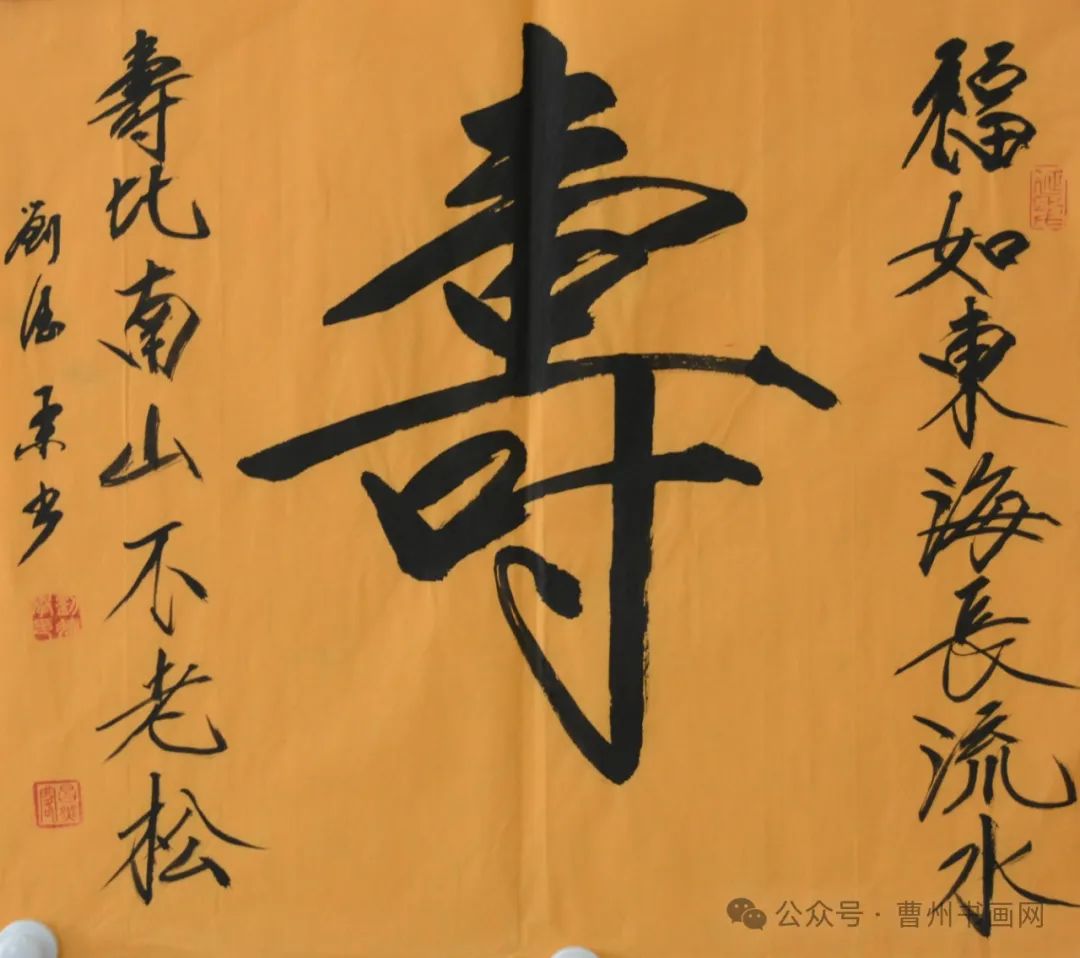 福如東海長流水
壽
壽比南山不老松
劉
书
公众号·曹州书画网